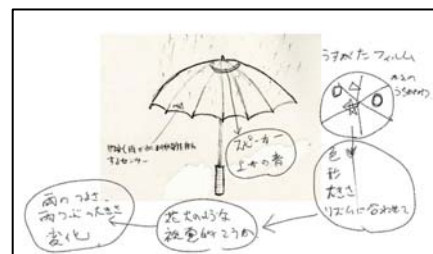 うすがたフィルム
かさの
うちがわ
スピーカー
上から音
色
形
大きさ
リズムに合わせて
花火のような
視覚的こうか
雨のつよさ、
雨つぶの大きさ
変化